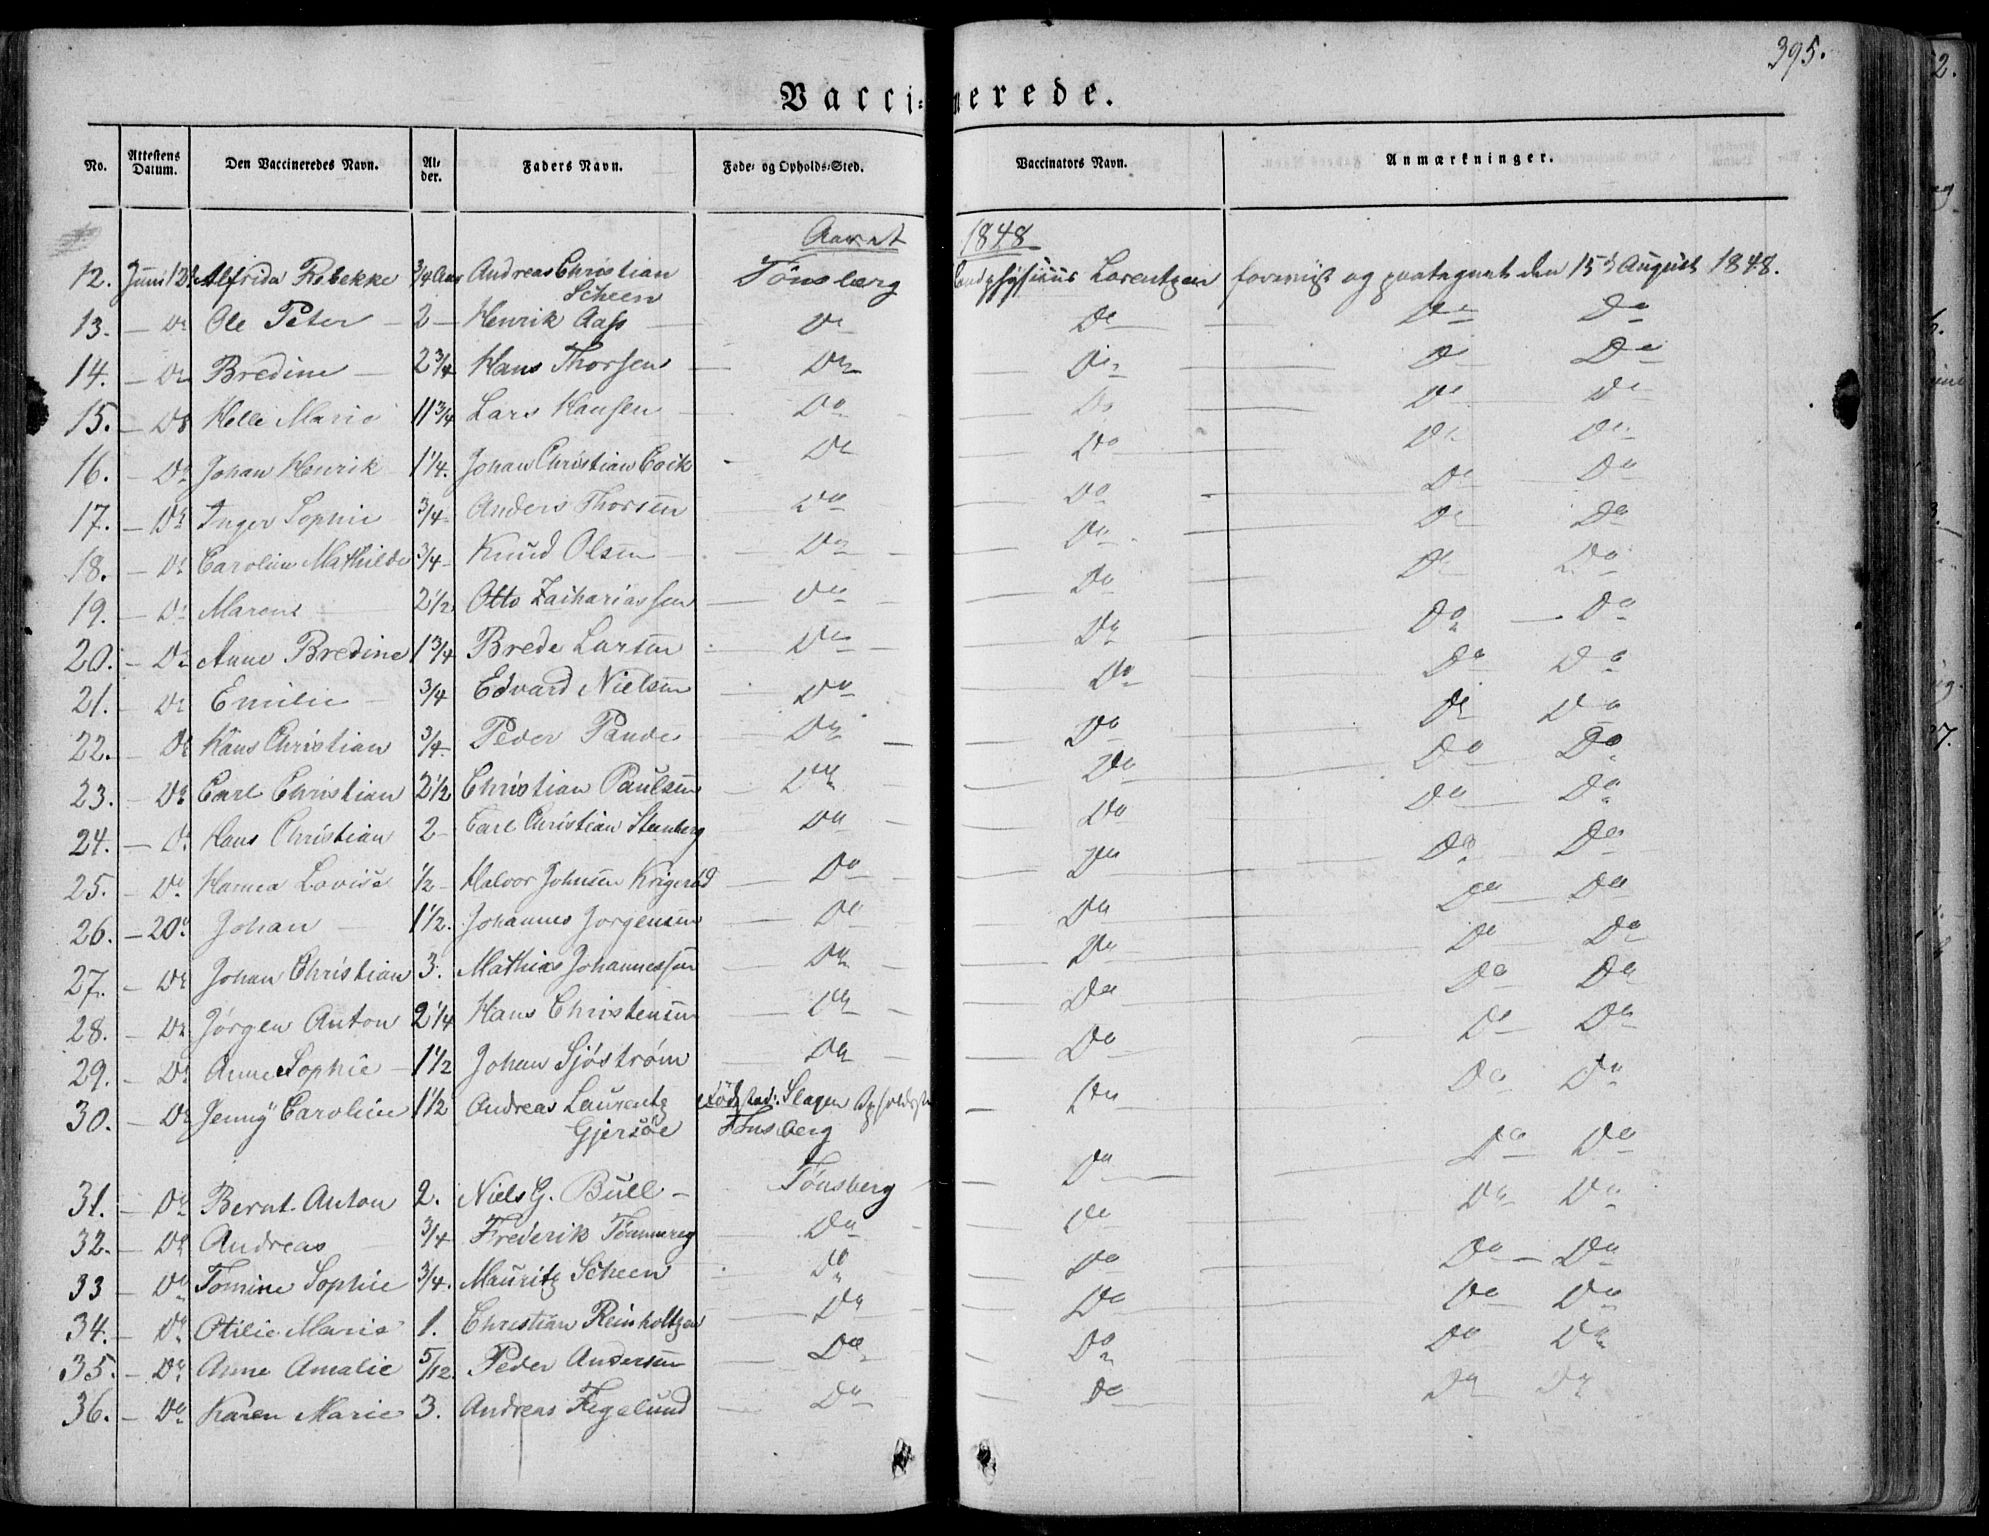 395.
Vaccinerede.
No. | Attestens Datum. | Den Vaccineredes Navn. | Alder. | Faders Navn. | Føde- og Opholds-Sted. | Vaccinators Navn. | Anmærkninger.
Aaret 1848
12. Juni 12 Alfrida Rebekke 3/4 Aar Andreas Christian Scheen Tønsberg Landphysicus Lorentzen forevist og paategnet den 15d August 1848.
13. — Do Ole Peter — 2 — Henrik Aass — Do Do Do Do
14. — Do Bredine — 2 3/4 Hans Thorsen — Do Do Do Do
15. — Do Helle Marie 11 3/4 Lars Hansen — Do Do Do Do
16. — Do Johan Henrik 1 1/4. Johan Christian Do Do Do Do
17. — Do Inger Sophie 3/4 Anders Thorsen Do Do Do Do
18. — Do Caroline Mathilde 3/4 Knud Olsen Do Do Do Do
19. — Do Maren 2 1/2 Otto Zachariassen Do Do Do Do
20. — Do Anne Bredine 1 3/4 Brede Larsen Do Do Do Do
21. — Do Emilie — 3/4 Edvard Nielsen Do Do Do Do
22. — Do Hans Christian 3/4 Peder Do Do Do Do
23. — Do Carl Christian 2 1/2 Christian Paulsen Do Do Do Do
24. — Do Hans Christian 2 — Carl Christian Steenberg Do Do Do Do
25. — Do Hanna Lovise 1/2 — Halvor Johnsen Do Do Do Do
26. — 20. Johan — 1 1/2. Johannes Jorgensen Do Do Do Do
27. — Do Johan Christian 3. Mathias Johannessen Do Do Do Do
28. — Do Jørgen Anton 2 1/4 Hans Christensen Do Do Do Do
29. — Do Anne Sophie — 1 1/2 Johan Sjöström Do Do Do Do
30. — Do Jenny Caroline 1 1/2 Andreas Laurentz Gjersøe Fødested: Slagen Opholdsst Tønsberg Do Do Do
31. — Do Bernt Anton 2. Niels G. Bull — Tønsberg Do Do Do
32. — Do Andreas 3/4 Frederik Do Do Do Do
33 — Do Tomine Sophie 3/4. Mauritz Scheen Do Do Do Do
34. — Do Otilie Marie 1. Christian Reinholtzen Do Do Do Do
35. — Do Anne Amalie 5/12. Peder Andersen Do Do Do Do
36. — Do Karen Marie 3. Andreas Fegelund Do Do Do Do